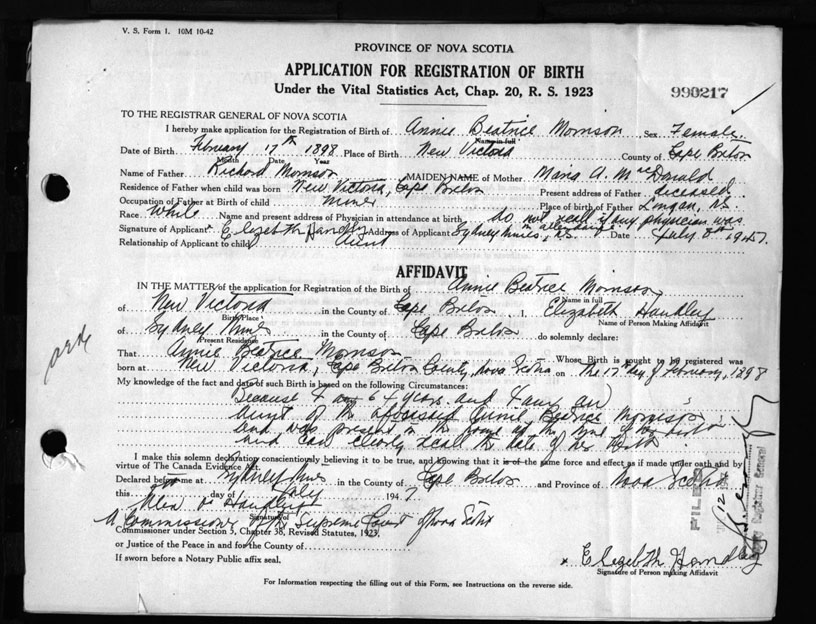 V. S. Form 1. 10M 10-42
PROVINCE OF NOVA SCOTIA
APPLICATION FOR REGISTRATION OF BIRTH
Under the Vital Statistics Act, Chap. 20, R. S. 1923
990217
TO THE REGISTRAR GENERAL OF NOVA SCOTIA
I hereby make application for the Registration of Birth of Annie Beatrice Morrison Sex Female
Name in full
Date of Birth February 17th 1898 Place of Birth New Victoria County of Cape Breton
Month Date Year
Name of Father Richard Morrison MAIDEN NAME of Mother Maria A. McDonald
Residence of Father when child was born New Victoria, Cape Breton Present address of Father deceased
Occupation of Father at Birth of child Miner Place of birth of Father Lingan, N.S.
Race White Name and present address of Physician in attendance at birth do not recall if any physician was
in attendance
Signature of Applicant Elizebth Handley Address of Applicant Sydney Mines, N.S. Date July 8th 1947.
Relationship of Applicant to child Aunt
AFFIDAVIT
IN THE MATTER of the application for Registration of the Birth of Annie Beatrice Morrison
Name in full
of New Victoria in the County of Cape Breton I, Elizabeth Handley
Birth Place Name of Person Making Affidavit
of Sydney Mines in the County of Cape Breton do solemnly declare:
Present Residence
That Annie Beatrice Morrison Whose Birth is sought to be registered was
born at New Victoria, Cape Breton County, Nova Scotia on the 17th day of February, 1898
My knowledge of the fact and date of such Birth is based on the following Circumstances:
Because I am 64 years and I am an
aunt of the aforesaid Annie Beatrice Morrison
and was present in the home at the time of her birth
and can clearly recall the date of her birth
I make this solemn declaration conscientiously believing it to be true, and knowing that it is of the same force and effect as if made under oath and by
virtue of The Canada Evidence Act.
Declared before me at Sydney Mines in the County of Cape Breton and Province of Nova Scotia
this day of July 1947
Signature of
A Commissioner of the Supreme Court of Nova Scotia
Commissioner under Section 5, Chapter 38, Revised Statutes, 1923,
or Justice of the Peace in and for the County of
If sworn before a Notary Public affix seal.
Elizebth Handley
Signature of Person making Affidavit
For Information respecting the filling out of this Form, see Instructions on the reverse side.
FILED